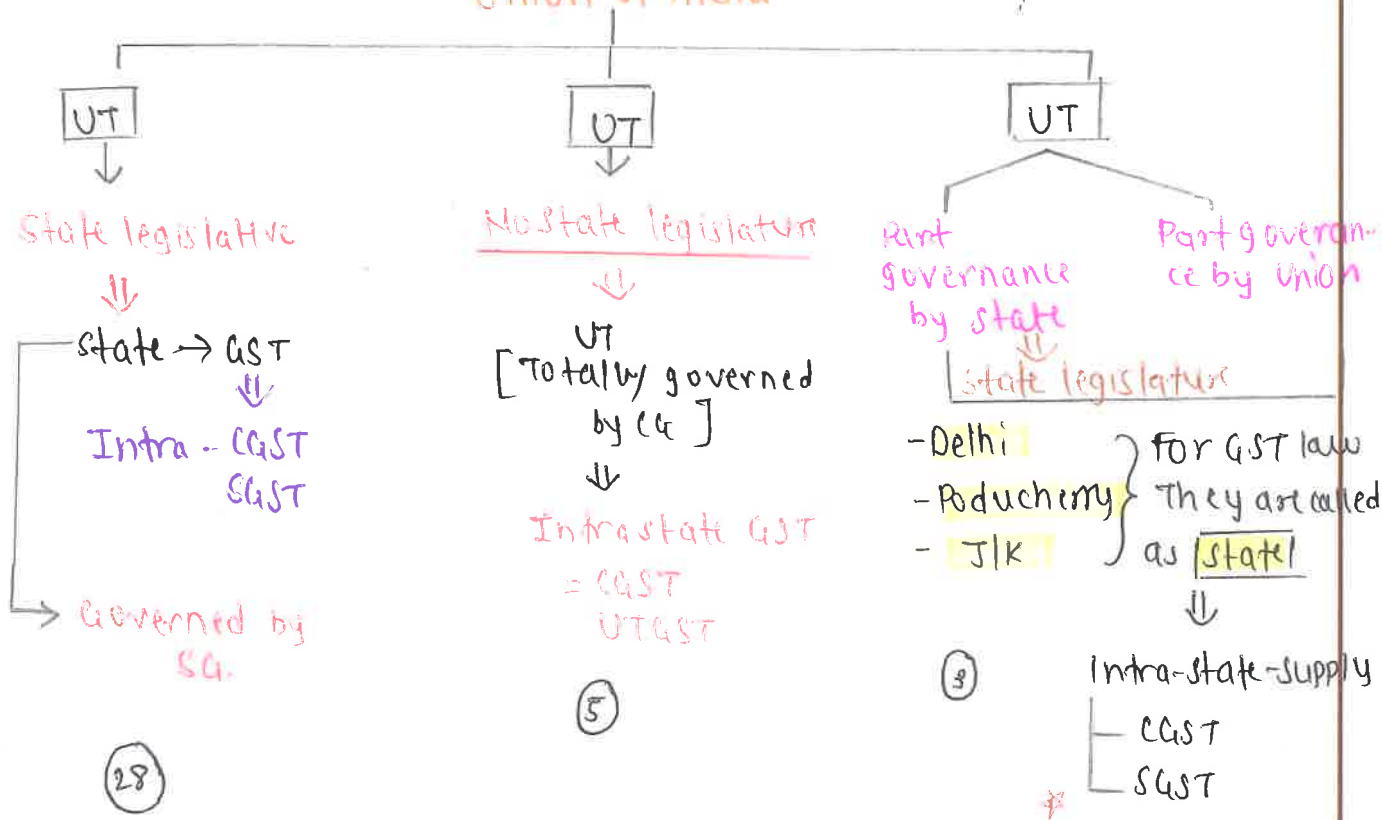 Union of India
UT
UT
UT
State legislative
State → GST
Intra - CGST
SGST
Governed by
SG.
28
No State legislature
UT
[Totally governed
by CG]
Intrastate GST
= CGST
UTGST
5
Part
governance
by state
Part goveran-
ce by union
State legislature
- Delhi
- Poducherry
- J/K
For GST law
They are called
as state
3
Intra-state-supply
CGST
SGST
*